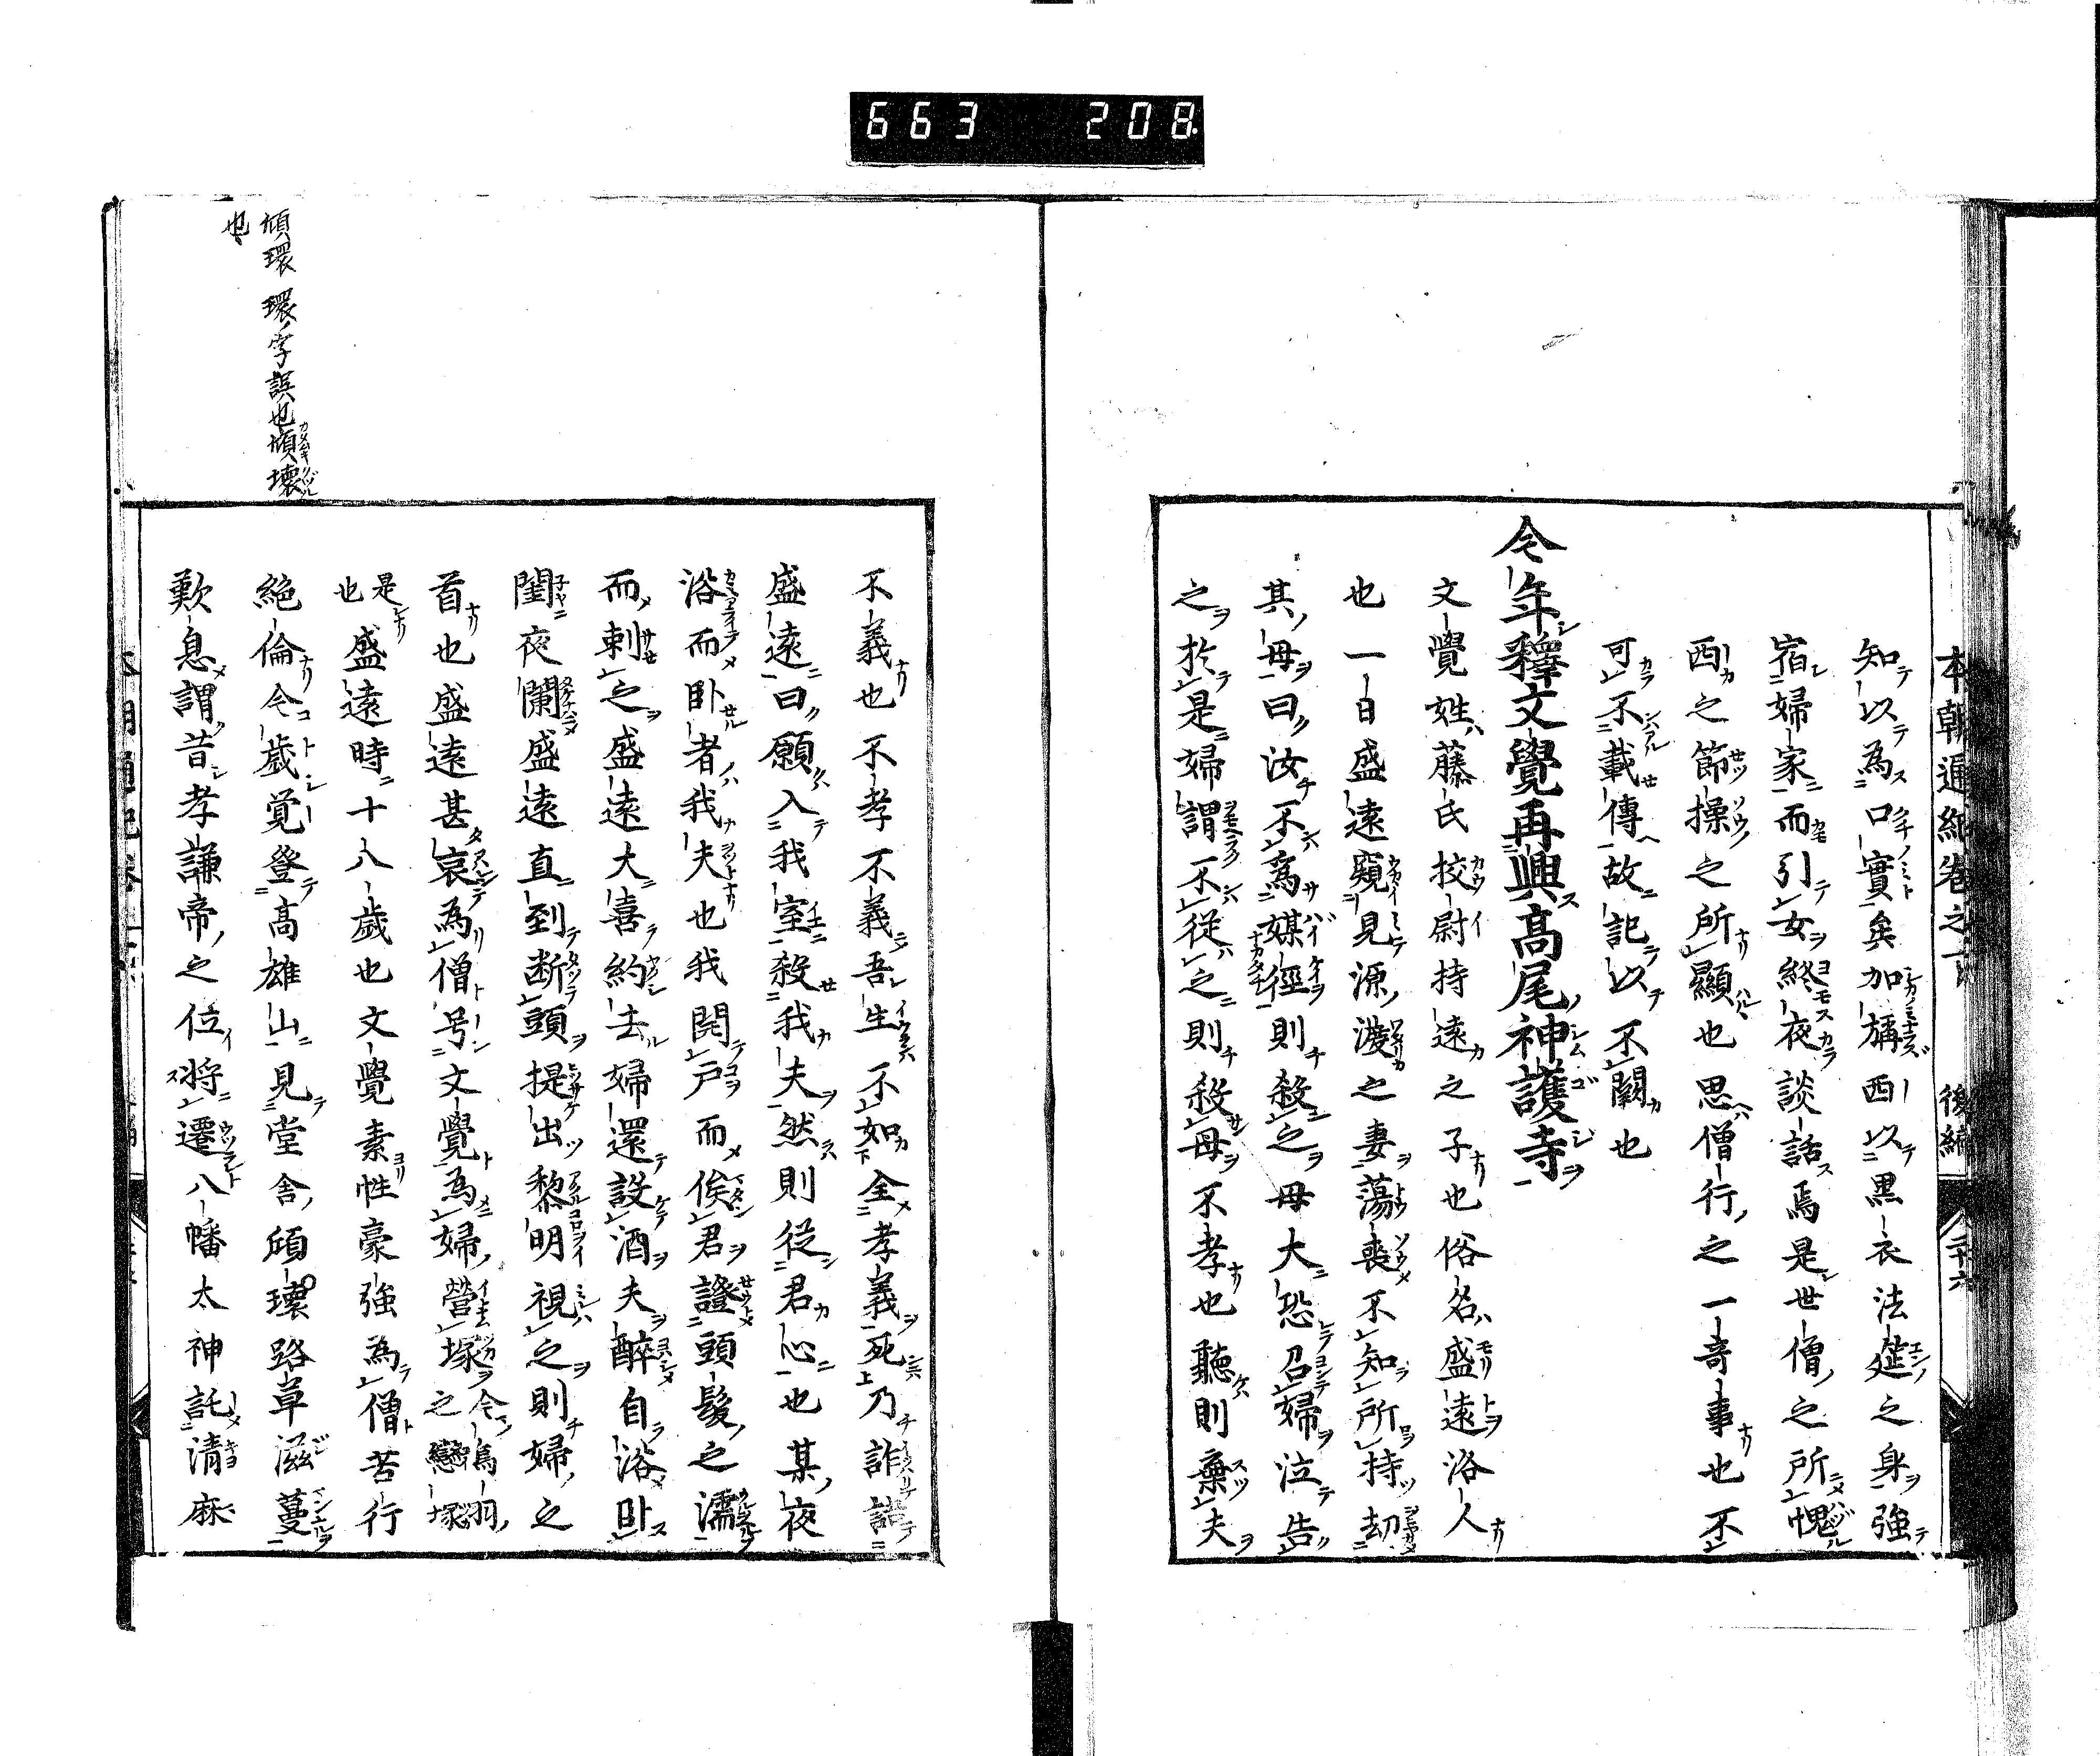 663 208
本朝通紀卷之一下 後編 二十六
知以為口實矣加旃西以黒衣法莚之身強
宿婦家而引女終夜談話焉是世僧之所愧
西之節操之所顯也思僧行之一竒事也不
可不載傳故記以不闕也
今年釋文覺再興髙尾神護寺
文覺姓藤氏挍尉持遠之子也俗名盛遠洛人
也一日盛遠窺見源渡之妻蕩喪不知所持刧
其母曰汝不為媒徑則殺之母大恐召婦泣告
之於是婦謂不從之則殺母不孝也聽則棄夫
不義也不孝不義吾生不如全孝義死乃詐諾
盛遠曰願入我室殺我夫然則從君心也某夜
浴而卧者我夫也我開戸而俟君證頭髮之濡
而刺之盛遠大喜約去婦還設酒夫醉自浴卧
閨夜闌盛遠直到断頭提出黎明視之則婦之
首也盛遠甚哀為僧号文覺為婦營塚今鳥羽之戀塚
是也盛遠時十八歲也文覺素性豪強為僧苦行
絶倫今歳覚登髙雄山見堂舎頎環路草滋蔓
歎息謂昔孝謙帝之位将遷八幡太神託清麻
頎環 環ノ字誤也頎壊
也